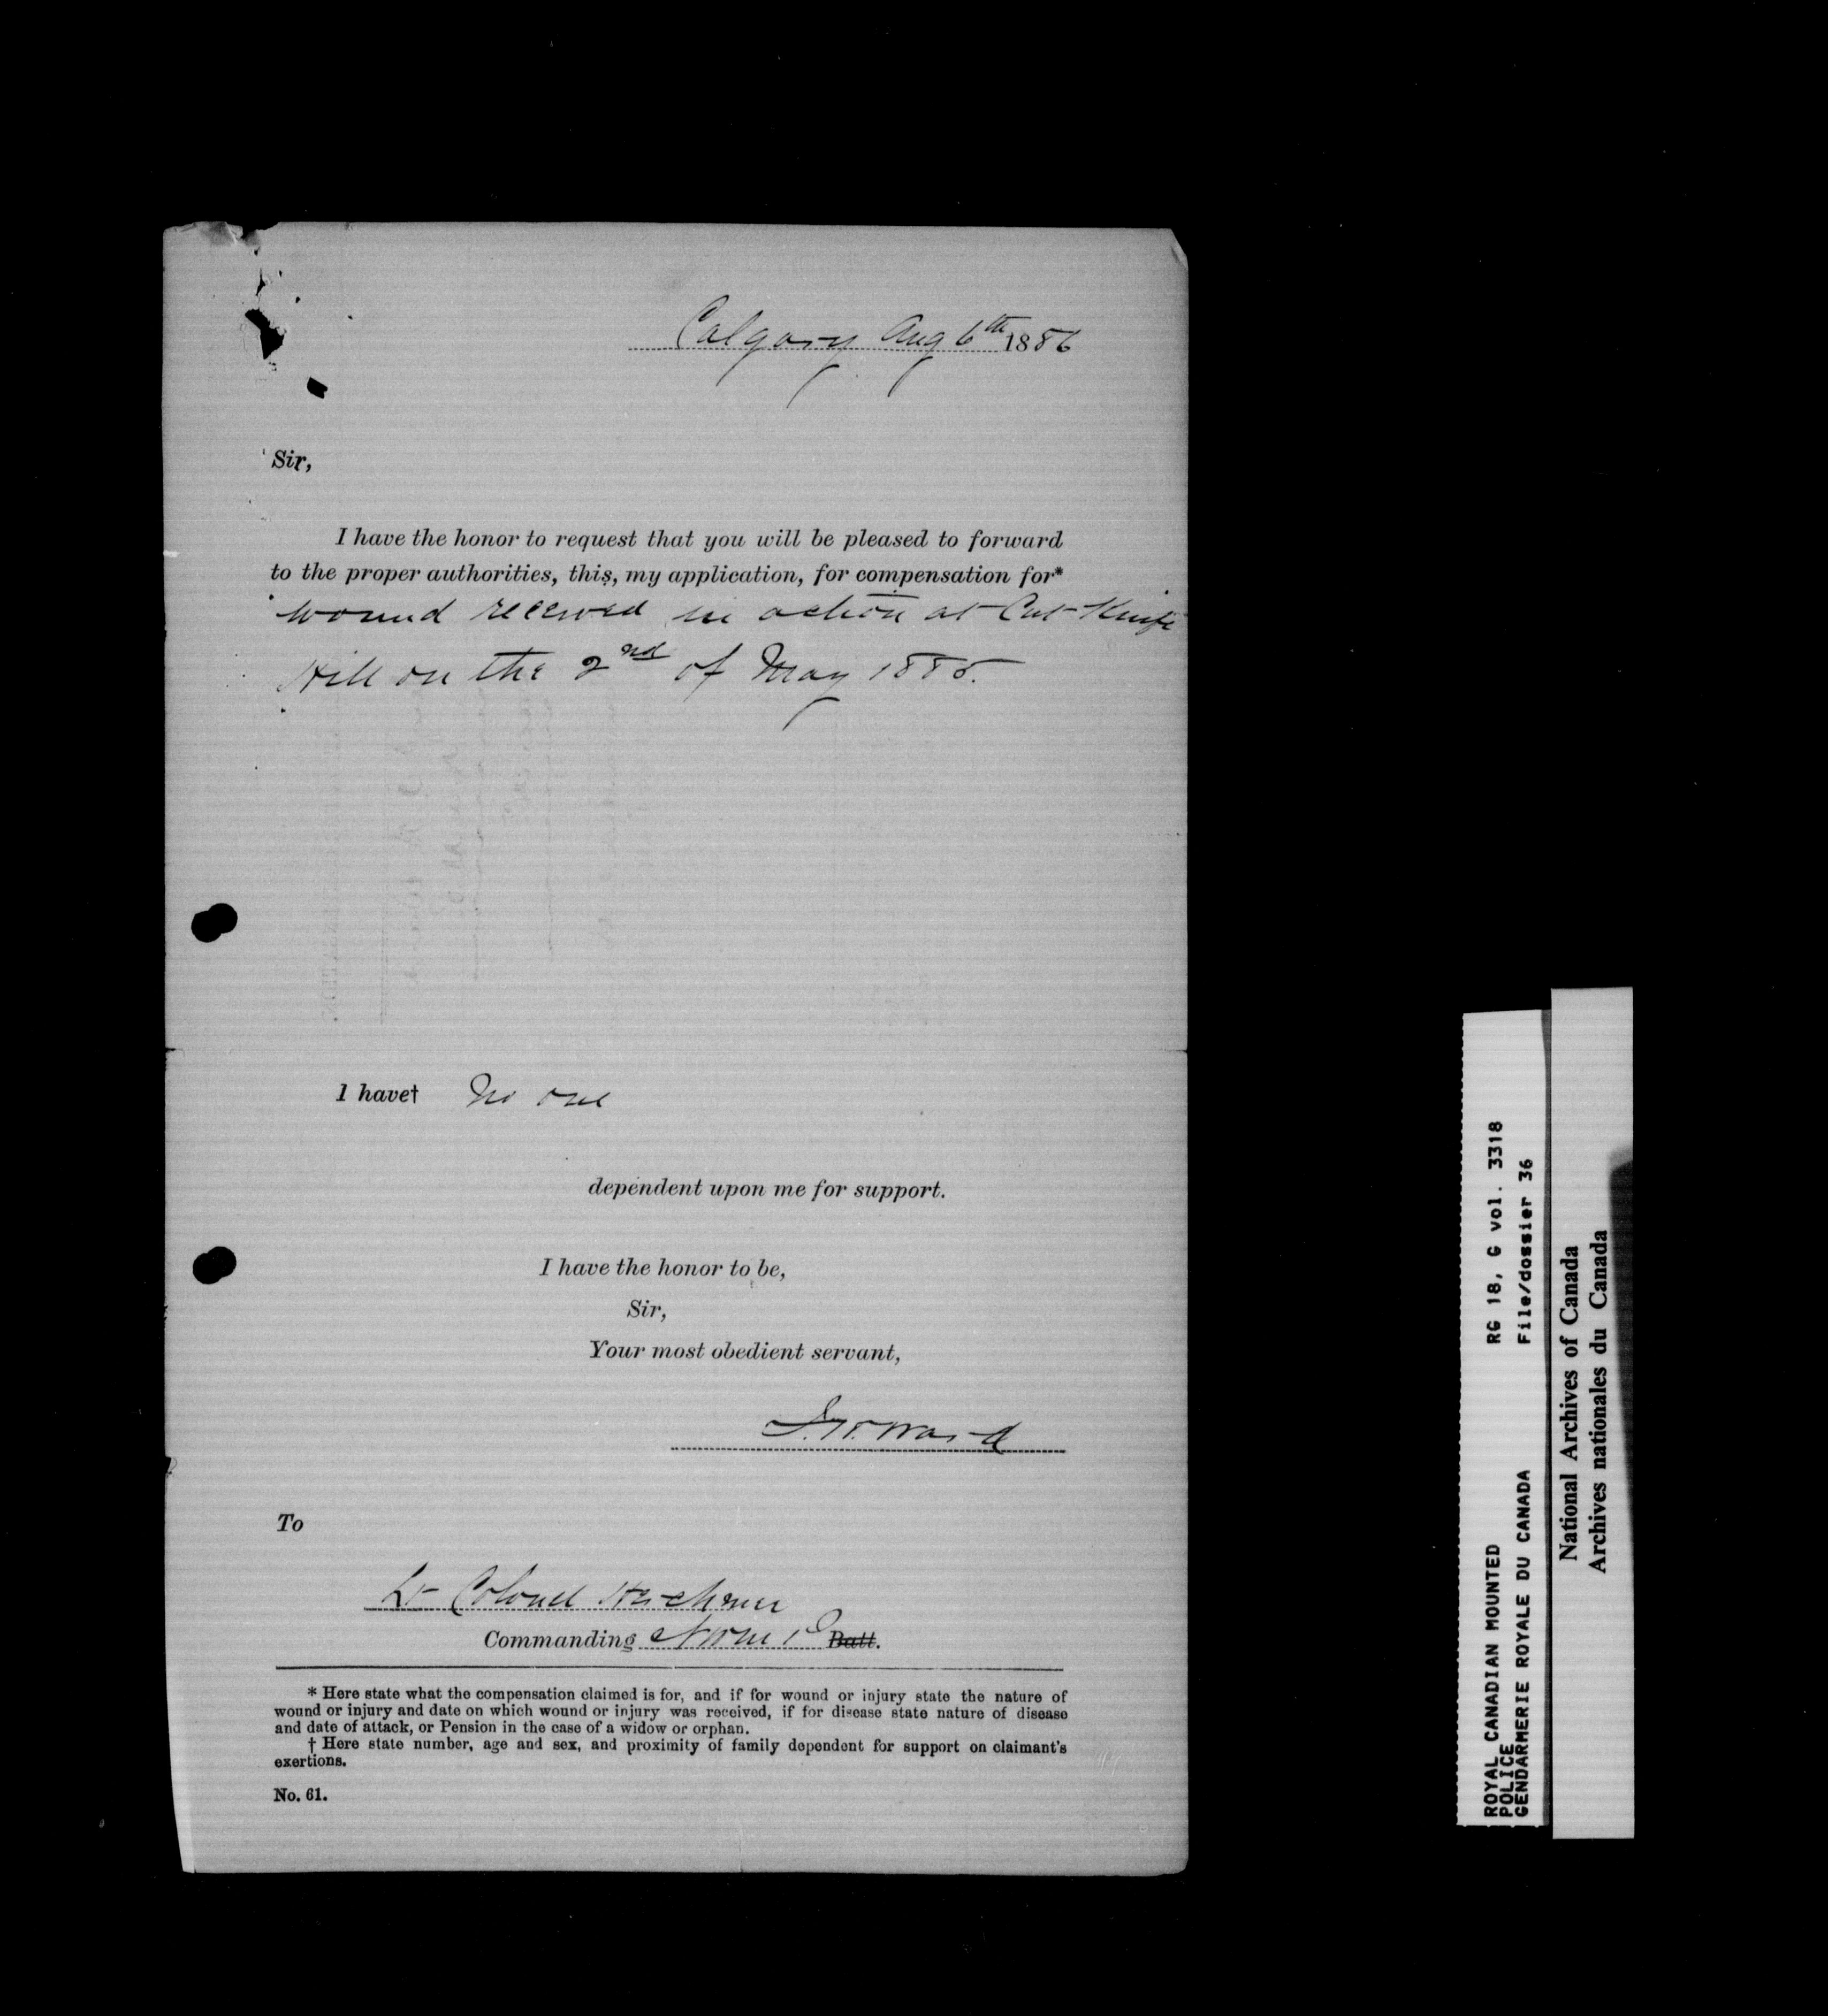 Calgary Aug 6th 1886
Sir,
I have the honor to request that you will be pleased to forward
to the proper authorities, this, my application, for compensation for*
wound received in action at Cut Knife
Hill on the 2nd of May 1885.
I have† No one
dependent upon me for support.
I have the honor to be,
Sir,
Your most obedient servant,
Ward
To
Lt Colonel Herchmer
Commanding NWMP Batt.
* Here state what the compensation claimed is for, and if for wound or injury state the nature of
wound or injury and date on which wound or injury was received, if for disease state nature of disease
and date of attack, or Pension in the case of a widow or orphan.
† Here state number, age and sex, and proximity of family dependent for support on claimant's
exertions.
No. 61.
ROYAL CANADIAN MOUNTED RG 18, G vol. 3318
POLICE File/dossier 36
GENDARMERIE ROYALE DU CANADA
National Archives of Canada
Archives nationales du Canada